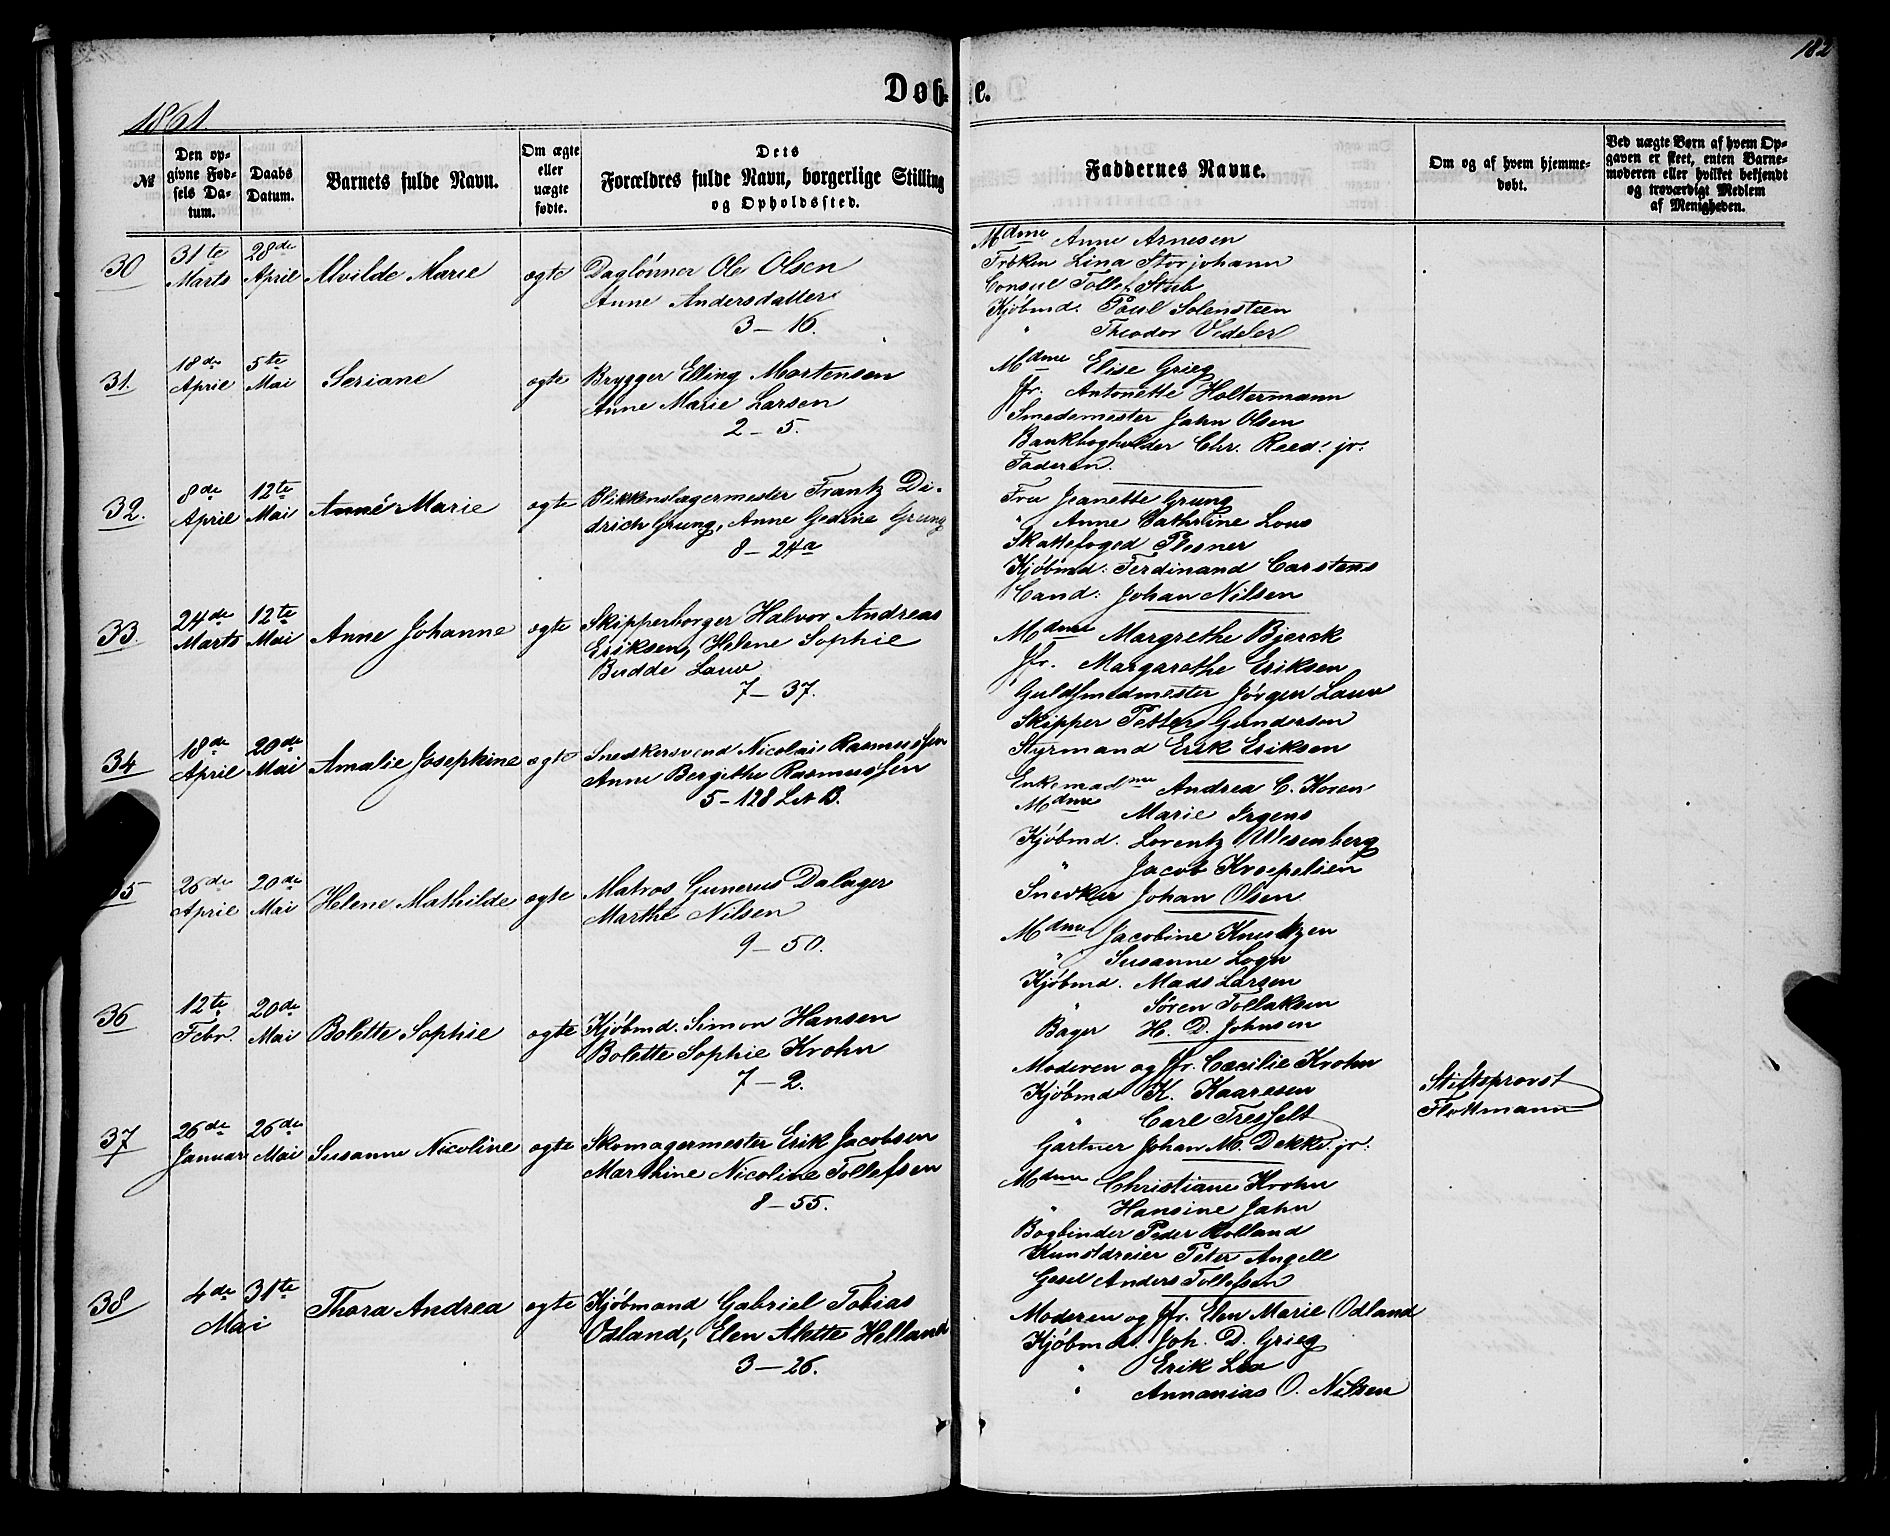 182
Døbte.
1861.
№
Den opgivne Fødsels Datum.
Daabs Datum.
Barnets fulde Navn.
Om ægte eller uægte fødte.
Dets Forældres fulde Navn, borgerlige Stilling og Opholdssted.
Faddernes Navne.
Om og af hvem hjemmedøbt.
Ved uægte Børn af hvem Opgaven er skeet, enten Barnemoderen eller hvilket bekjendt og troværdigt Medlem af Menigheden.
30 31te Marts 28de April Alvilde Marie ægte Daglønner Ole Olsen
Anne Andersdatter
3 – 16.
Mdme Anne Arnesen
Frøken Lina Storjohann
Consul Tollef Stub
Kjøbmd. Poul Solensteen
" Theodor Vedeler
31. 18de April 5te Mai Seriane ægte Brygger Elling Mortensen
Anne Marie Larsen
2 – 5.
Mdme Elise Grieg
Jfr. Antonette Holtermann
Smedemester Jahn Olsen
Bankbogholder Chr. Reed: jr:
Faderen.
32. 8de April 12te Mai Anne Marie ægte Blikkenslagermester Frantz Di-
drich Grung, Anne Gedine Grung
8 – 24a
Fru Jeanette Grung
" Anne Cathrine Lous
Skattefoged Plesner
Kjøbmd: Ferdinand Carstens
Cand: Johan Nilsen
33. 24de Marts 12te Mai Anne Johanne ægte Skipperborger Halvor Andreas
Eriksen, Helene Sophie
Budde Lauw
7 – 37.
Mdme Margrethe Bjerck
Jfr. Margarethe Eriksen
Guldsmedmester Jørgen Lauw
Skipper Petter Gundersen
Styrmand Erik Eriksen
34 18de April 20de Mai Amalie Josephine ægte Snedkersvend Nicolai Rasmussen
Anne Bergithe Rasmussen
5 – 128 Lit B.
Enkemadme Andrea C. Koren
Mdme Marie Irgens
Kjøbmd. Lorentz Wesenberg
" Jacob Kroepelien
Snedker Johan Olsen
35 26de April 20de Mai Helene Mathilde ægte Matros Gunerus Dalager
Marthe Nilsen
9 – 50.
Mdme Jacobine Knudtzen
" Susanne Logn
Kjøbmd. Mads Larsen
" Søren Tollaksen
Bager H. D. Johnsen
36 12te Febr. 20de Mai Bolette Sophie ægte Kjøbmd. Simon Hansen
Bolette Sophie Krohn
7 – 2.
Moderen og Jfr. Cæcilie Krohn
Kjøbmd K. Kaaresen
" Carl Tresselt
Gartner Johan M. Dekke jr:
Stiftsprovst
Flottmann
37 26de Januar 26de Mai Susanne Nicoline ægte Skomagermester Erik Jacobsen
Marthine Nicoline Tollefsen
8 – 55.
Mdme Christiane Krohn
" Hansine Jahn
Bogbinder Peder Rolland
Kunstdreier Peter Angell
Gesel Anders Tollefsen
38 4de 31te Mai Thora Andrea ægte Kjøbmand Gabriel Tobias
Odland, Elen Aktte Helland
3 – 26.
Moderen og Jfr. Elen Marie Odland
Kjøbmd. Joh. D. Grieg
" Erik Lea
" Annanias O. Nilsen